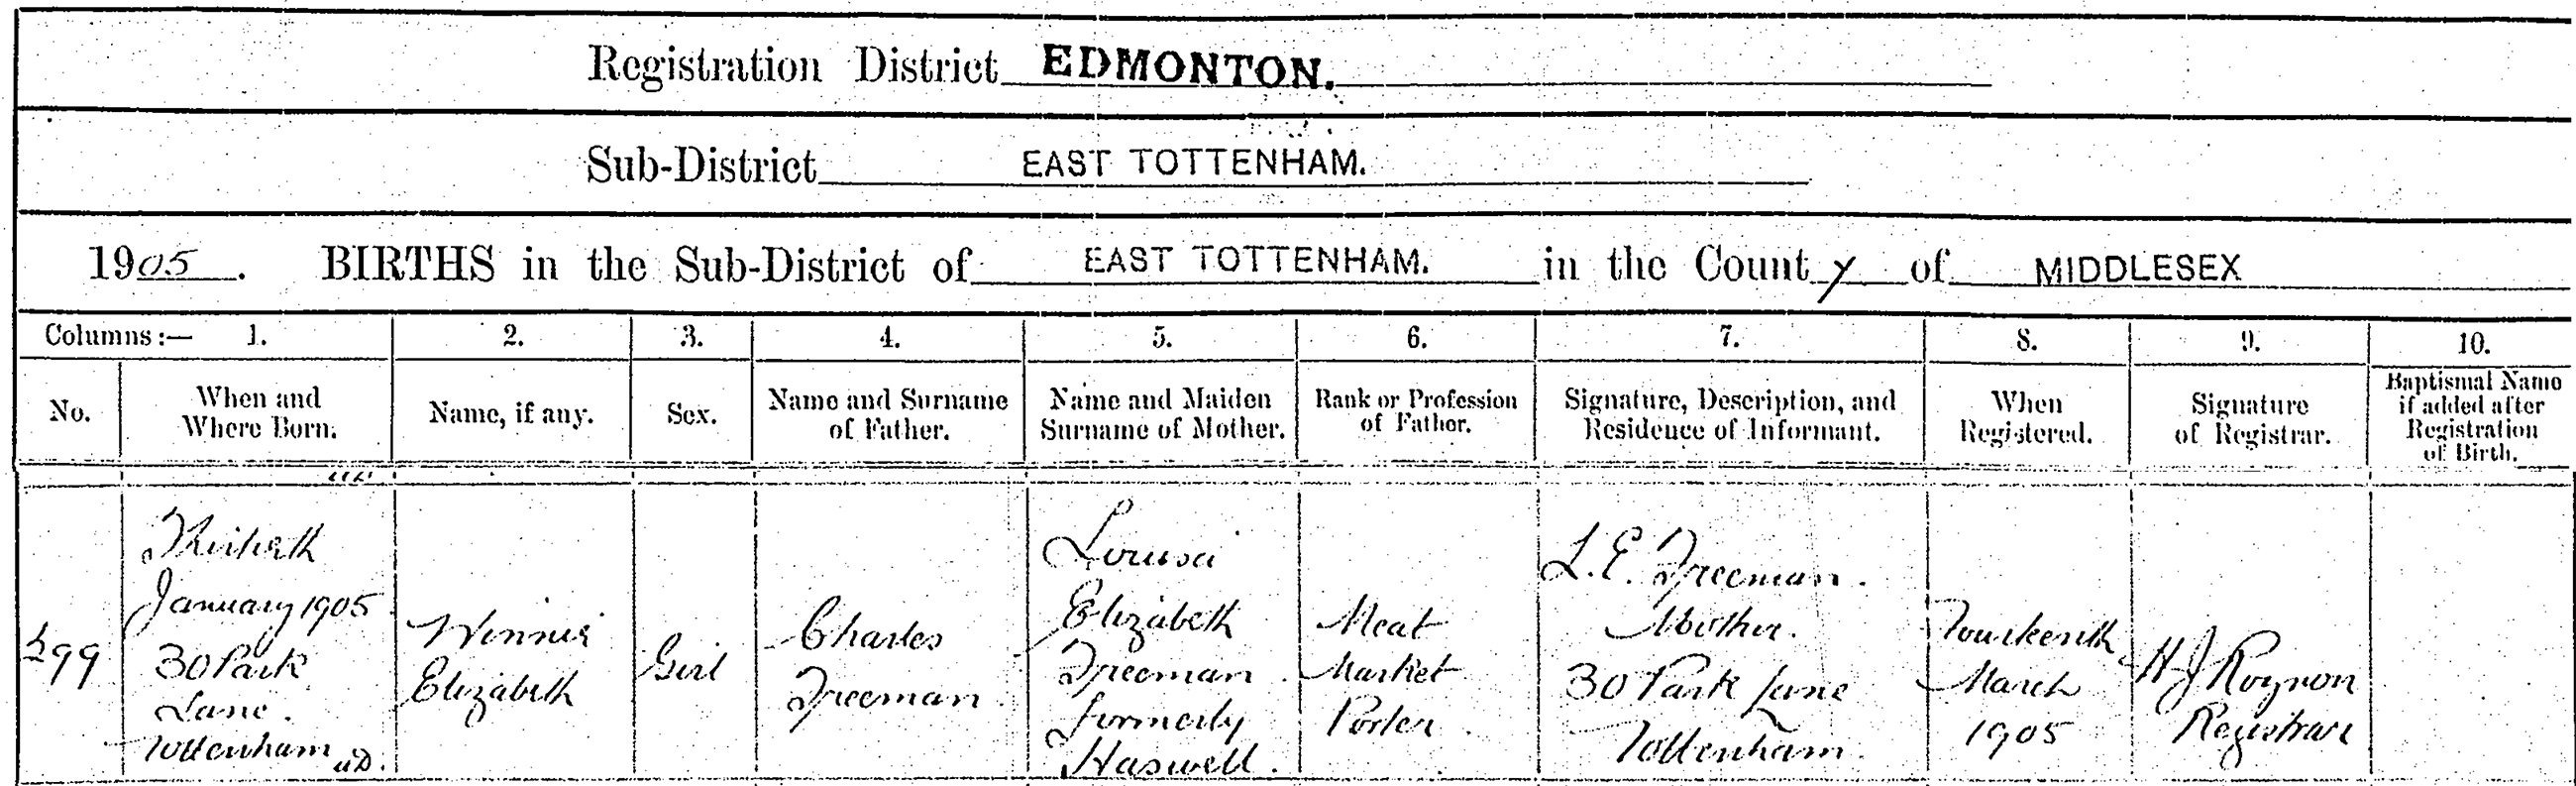 Registration District EDMONTON.
Sub-District EAST TOTTENHAM.
1905. BIRTHS in the Sub-District of EAST TOTTENHAM. in the County of MIDDLESEX
Columns:— 1. 2. 3. 4. 5. 6. 7. 8. 9. 10.
No.
When and
Where Born.
Name, if any.
Sex.
Name and Surname
of Father.
Name and Maiden
Surname of Mother.
Rank or Profession
of Father.
Signature, Description, and
Residence of Informant.
When
Registered.
Signature
of Registrar.
Baptismal Name
if added after
Registration
of Birth.
299
Thirtieth
January 1905
30 Park
Lane.
Tottenham U.D.
Winnie
Elizabeth
Girl
Charles
Freeman
Louisa
Elizabeth
Freeman
formerly
Haswell.
Meat
Market
Porter
L.E. Freeman.
Mother.
30 Park Lane
Tottenham
Fourteenth
March
1905
H J Roynon
Registrar